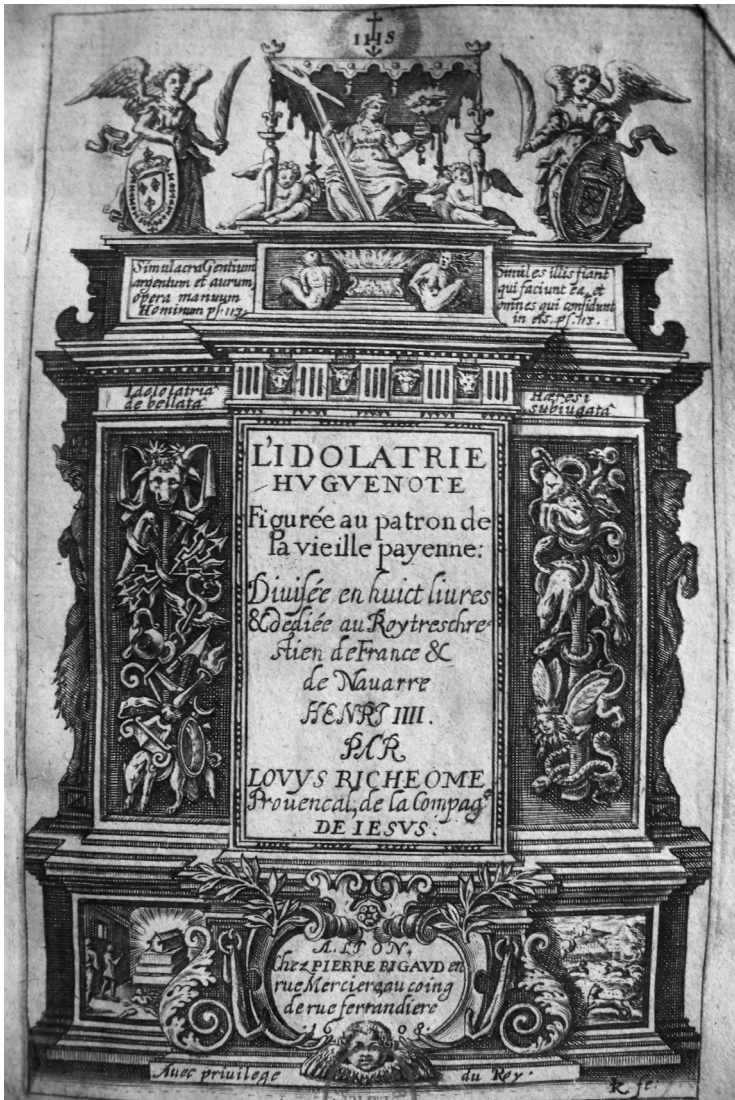 IHS
Simulacra Gentium
argentum et aurum,
opera manuum
Hominum ps. 113.
Simil es illis fiant
qui faciunt ea, et
omnes qui confidunt
in eis. ps. 113.
Idololatria
debellata
Hæresi
subiugata
L'IDOLATRIE
HVGVENOTE
Figurée au patron de
la vieille payenne:
Diuisée en huict liures
& dediée au Roy treschre-
stien de France &
de Nauarre
HENRI IIII.
PAR
LOVYS RICHEOME
Prouencal, de la Compag^e
DE IESVS.
A LION,
Chez PIERRE RIGAVD en
rue Merciere au coing
de rue ferrandiere
1608.
Auec priuilege du Roy.
R fe.